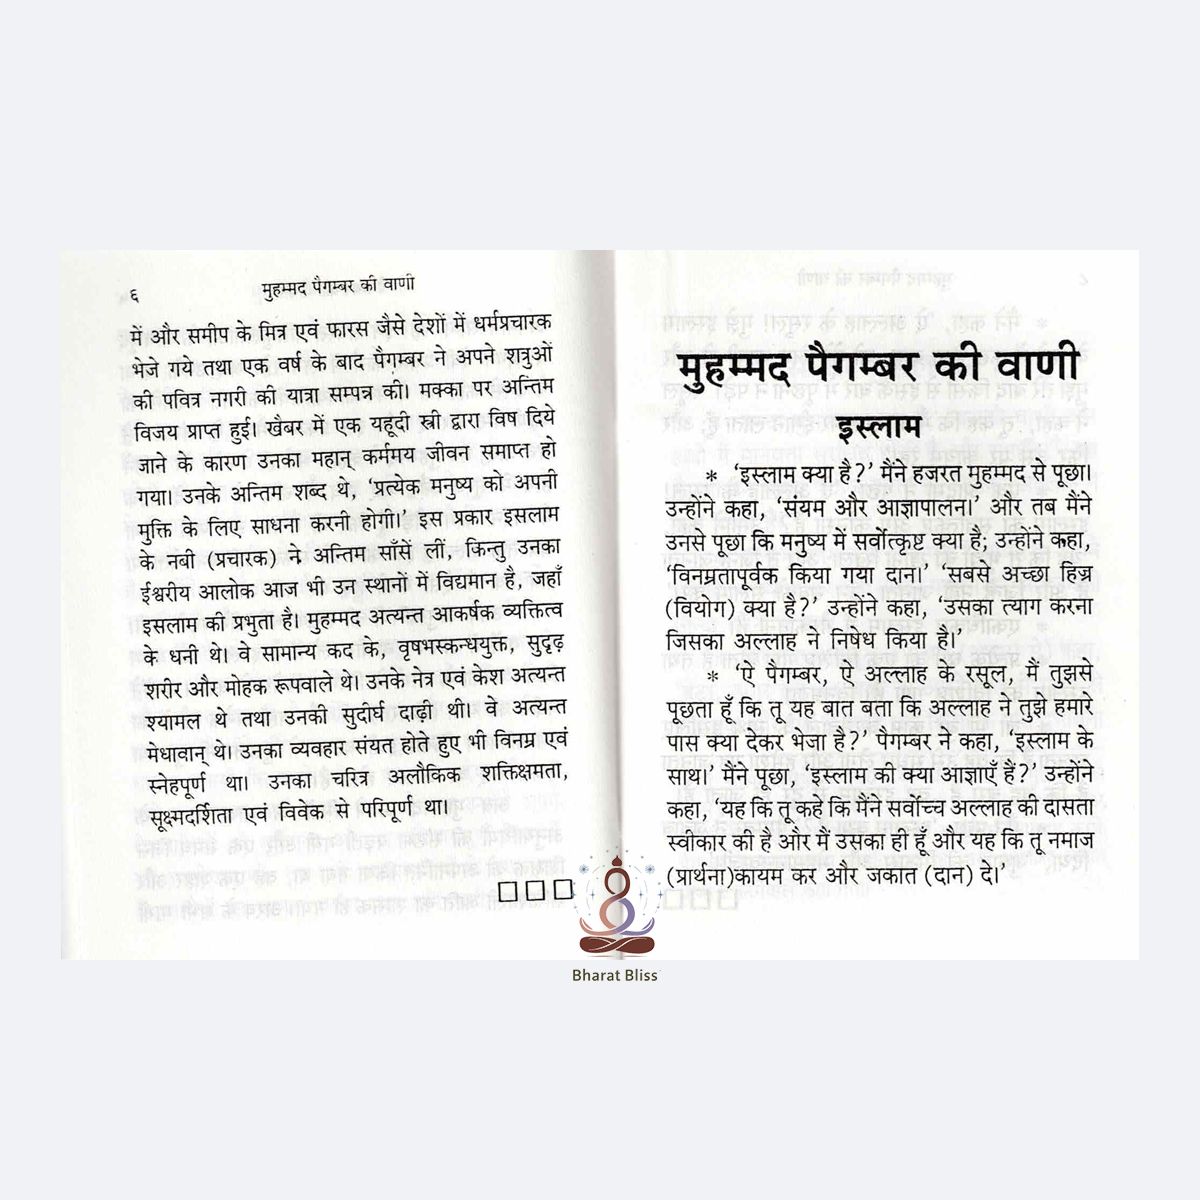 ६
मुहम्मद पैगम्बर की वाणी
में और समीप के मित्र एवं फारस जैसे देशों में धर्मप्रचारक
भेजे गये तथा एक वर्ष के बाद पैगम्बर ने अपने शत्रुओं
की पवित्र नगरी की यात्रा सम्पन्न की। मक्का पर अन्तिम
विजय प्राप्त हुई। खैबर में एक यहूदी स्त्री द्वारा विष दिये
जाने के कारण उनका महान् कर्ममय जीवन समाप्त हो
गया। उनके अन्तिम शब्द थे, ‘प्रत्येक मनुष्य को अपनी
मुक्ति के लिए साधना करनी होगी।’ इस प्रकार इसलाम
के नबी (प्रचारक) ने अन्तिम साँसें लीं, किन्तु उनका
ईश्वरीय आलोक आज भी उन स्थानों में विद्यमान है, जहाँ
इसलाम की प्रभुता है। मुहम्मद अत्यन्त आकर्षक व्यक्तित्व
के धनी थे। वे सामान्य कद के, वृषभस्कन्धयुक्त, सुदृढ़
शरीर और मोहक रूपवाले थे। उनके नेत्र एवं केश अत्यन्त
श्यामल थे तथा उनकी सुदीर्घ दाढ़ी थी। वे अत्यन्त
मेधावान् थे। उनका व्यवहार संयत होते हुए भी विनम्र एवं
स्नेहपूर्ण था। उनका चरित्र अलौकिक शक्तिक्षमता,
सूक्ष्मदर्शिता एवं विवेक से परिपूर्ण था।
मुहम्मद पैगम्बर की वाणी
इस्लाम
* ‘इस्लाम क्या है?’ मैंने हजरत मुहम्मद से पूछा।
उन्होंने कहा, ‘संयम और आज्ञापालन।’ और तब मैंने
उनसे पूछा कि मनुष्य में सर्वोत्कृष्ट क्या है; उन्होंने कहा,
‘विनम्रतापूर्वक किया गया दान।’ ‘सबसे अच्छा हिज्र
(वियोग) क्या है?’ उन्होंने कहा, ‘उसका त्याग करना
जिसका अल्लाह ने निषेध किया है।’
* ‘ऐ पैगम्बर, ऐ अल्लाह के रसूल, मैं तुझसे
पूछता हूँ कि तू यह बात बता कि अल्लाह ने तुझे हमारे
पास क्या देकर भेजा है?’ पैगम्बर ने कहा, ‘इस्लाम के
साथ।’ मैंने पूछा, ‘इस्लाम की क्या आज्ञाएँ हैं?’ उन्होंने
कहा, ‘यह कि तू कहे कि मैंने सर्वोच्च अल्लाह की दासता
स्वीकार की है और मैं उसका ही हूँ और यह कि तू नमाज
(प्रार्थना)कायम कर और जकात (दान) दे।’
Bharat Bliss